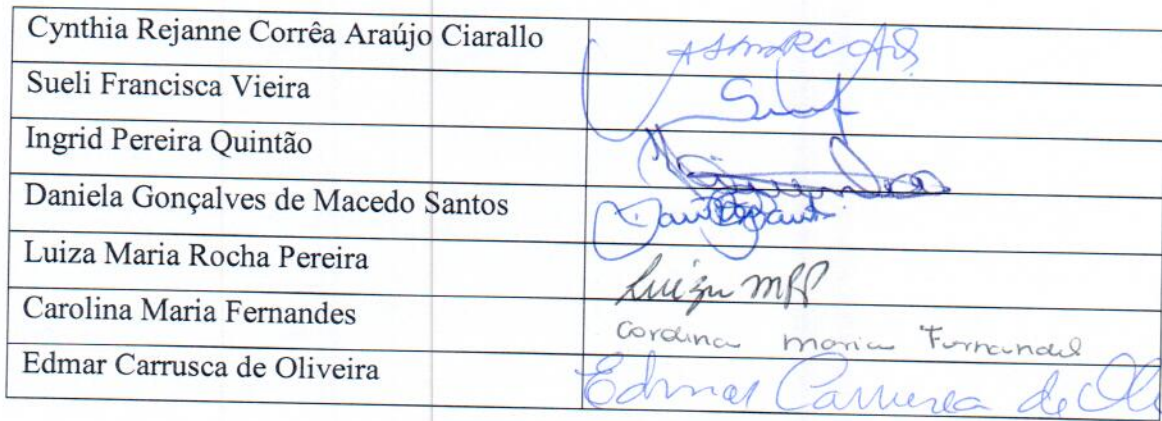 Cynthia Rejanne Corrêa Araújo Ciarallo
Sueli Francisca Vieira
Ingrid Pereira Quintão
Daniela Gonçalves de Macedo Santos
Luiza Maria Rocha Pereira Luiza MRP
Carolina Maria Fernandes Carolina Maria Fernandes
Edmar Carrusca de Oliveira Edmar Carrusca de Oli